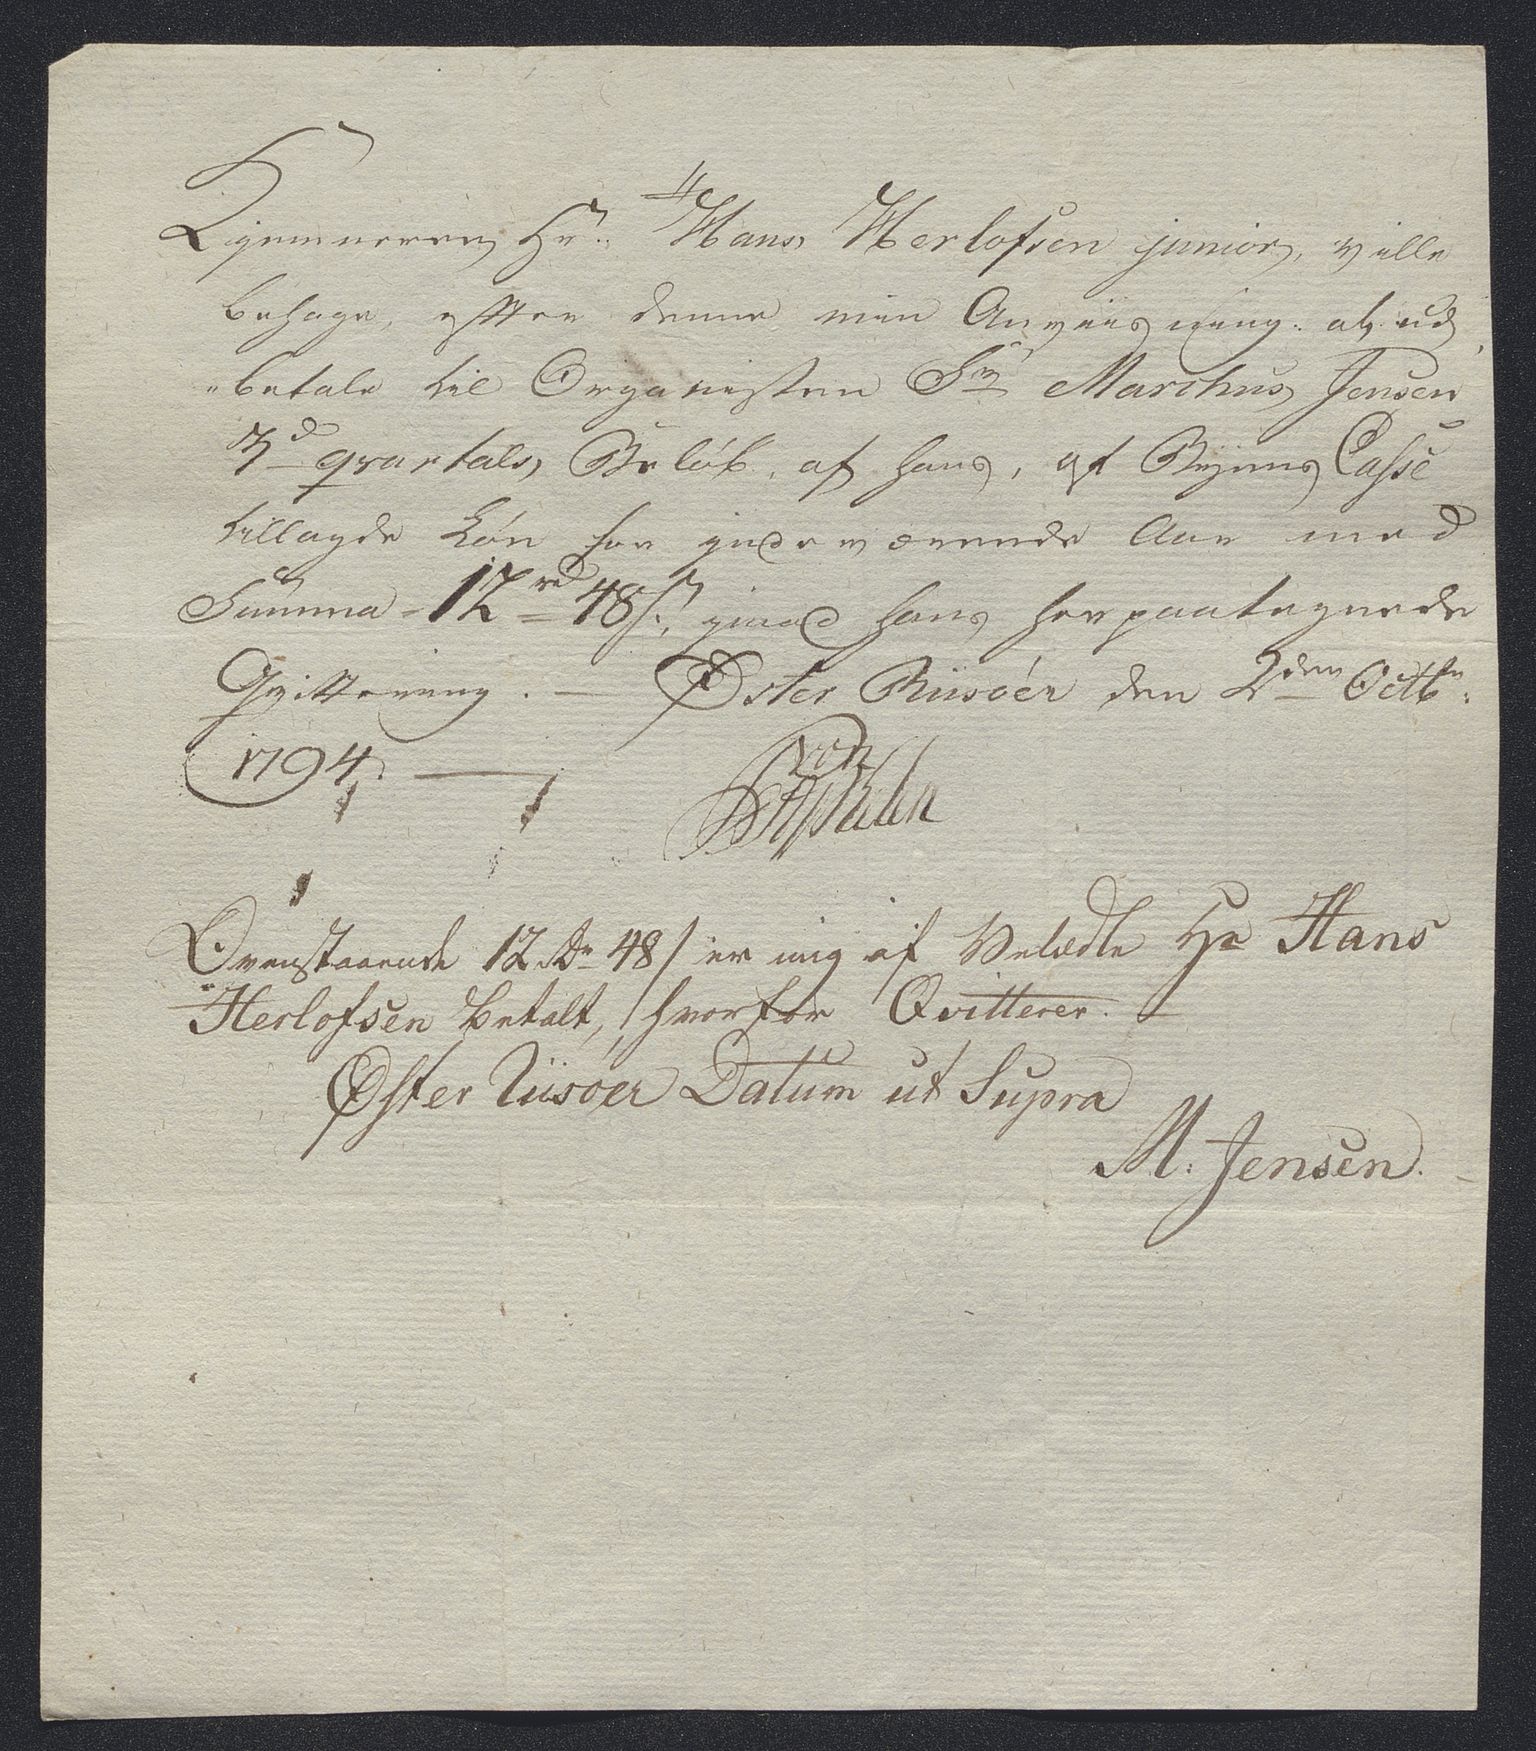 Kjemneren Hr: Hans Herlofsen junior, ville
behage, efter denne min Anviisning at ud
"betale til Organisten Sr Marchus Jensen
3d qvartals Beløb, af hans, af Byens Casse
tillagde Løn for indeværende Aar med
Summa - 12 rd 48 s, imod hans herpaategnede
Qvittering. — Øster Riisøer den 2den Octbr:
1794. —
von
Ovenstaaende 12 Dr 48 s er mig af Velædle Hr Hans
Herlofsen betalt, hvorfor Qvitterer. —
Øster Riisøer Datum ut Supra
M: Jensen. —